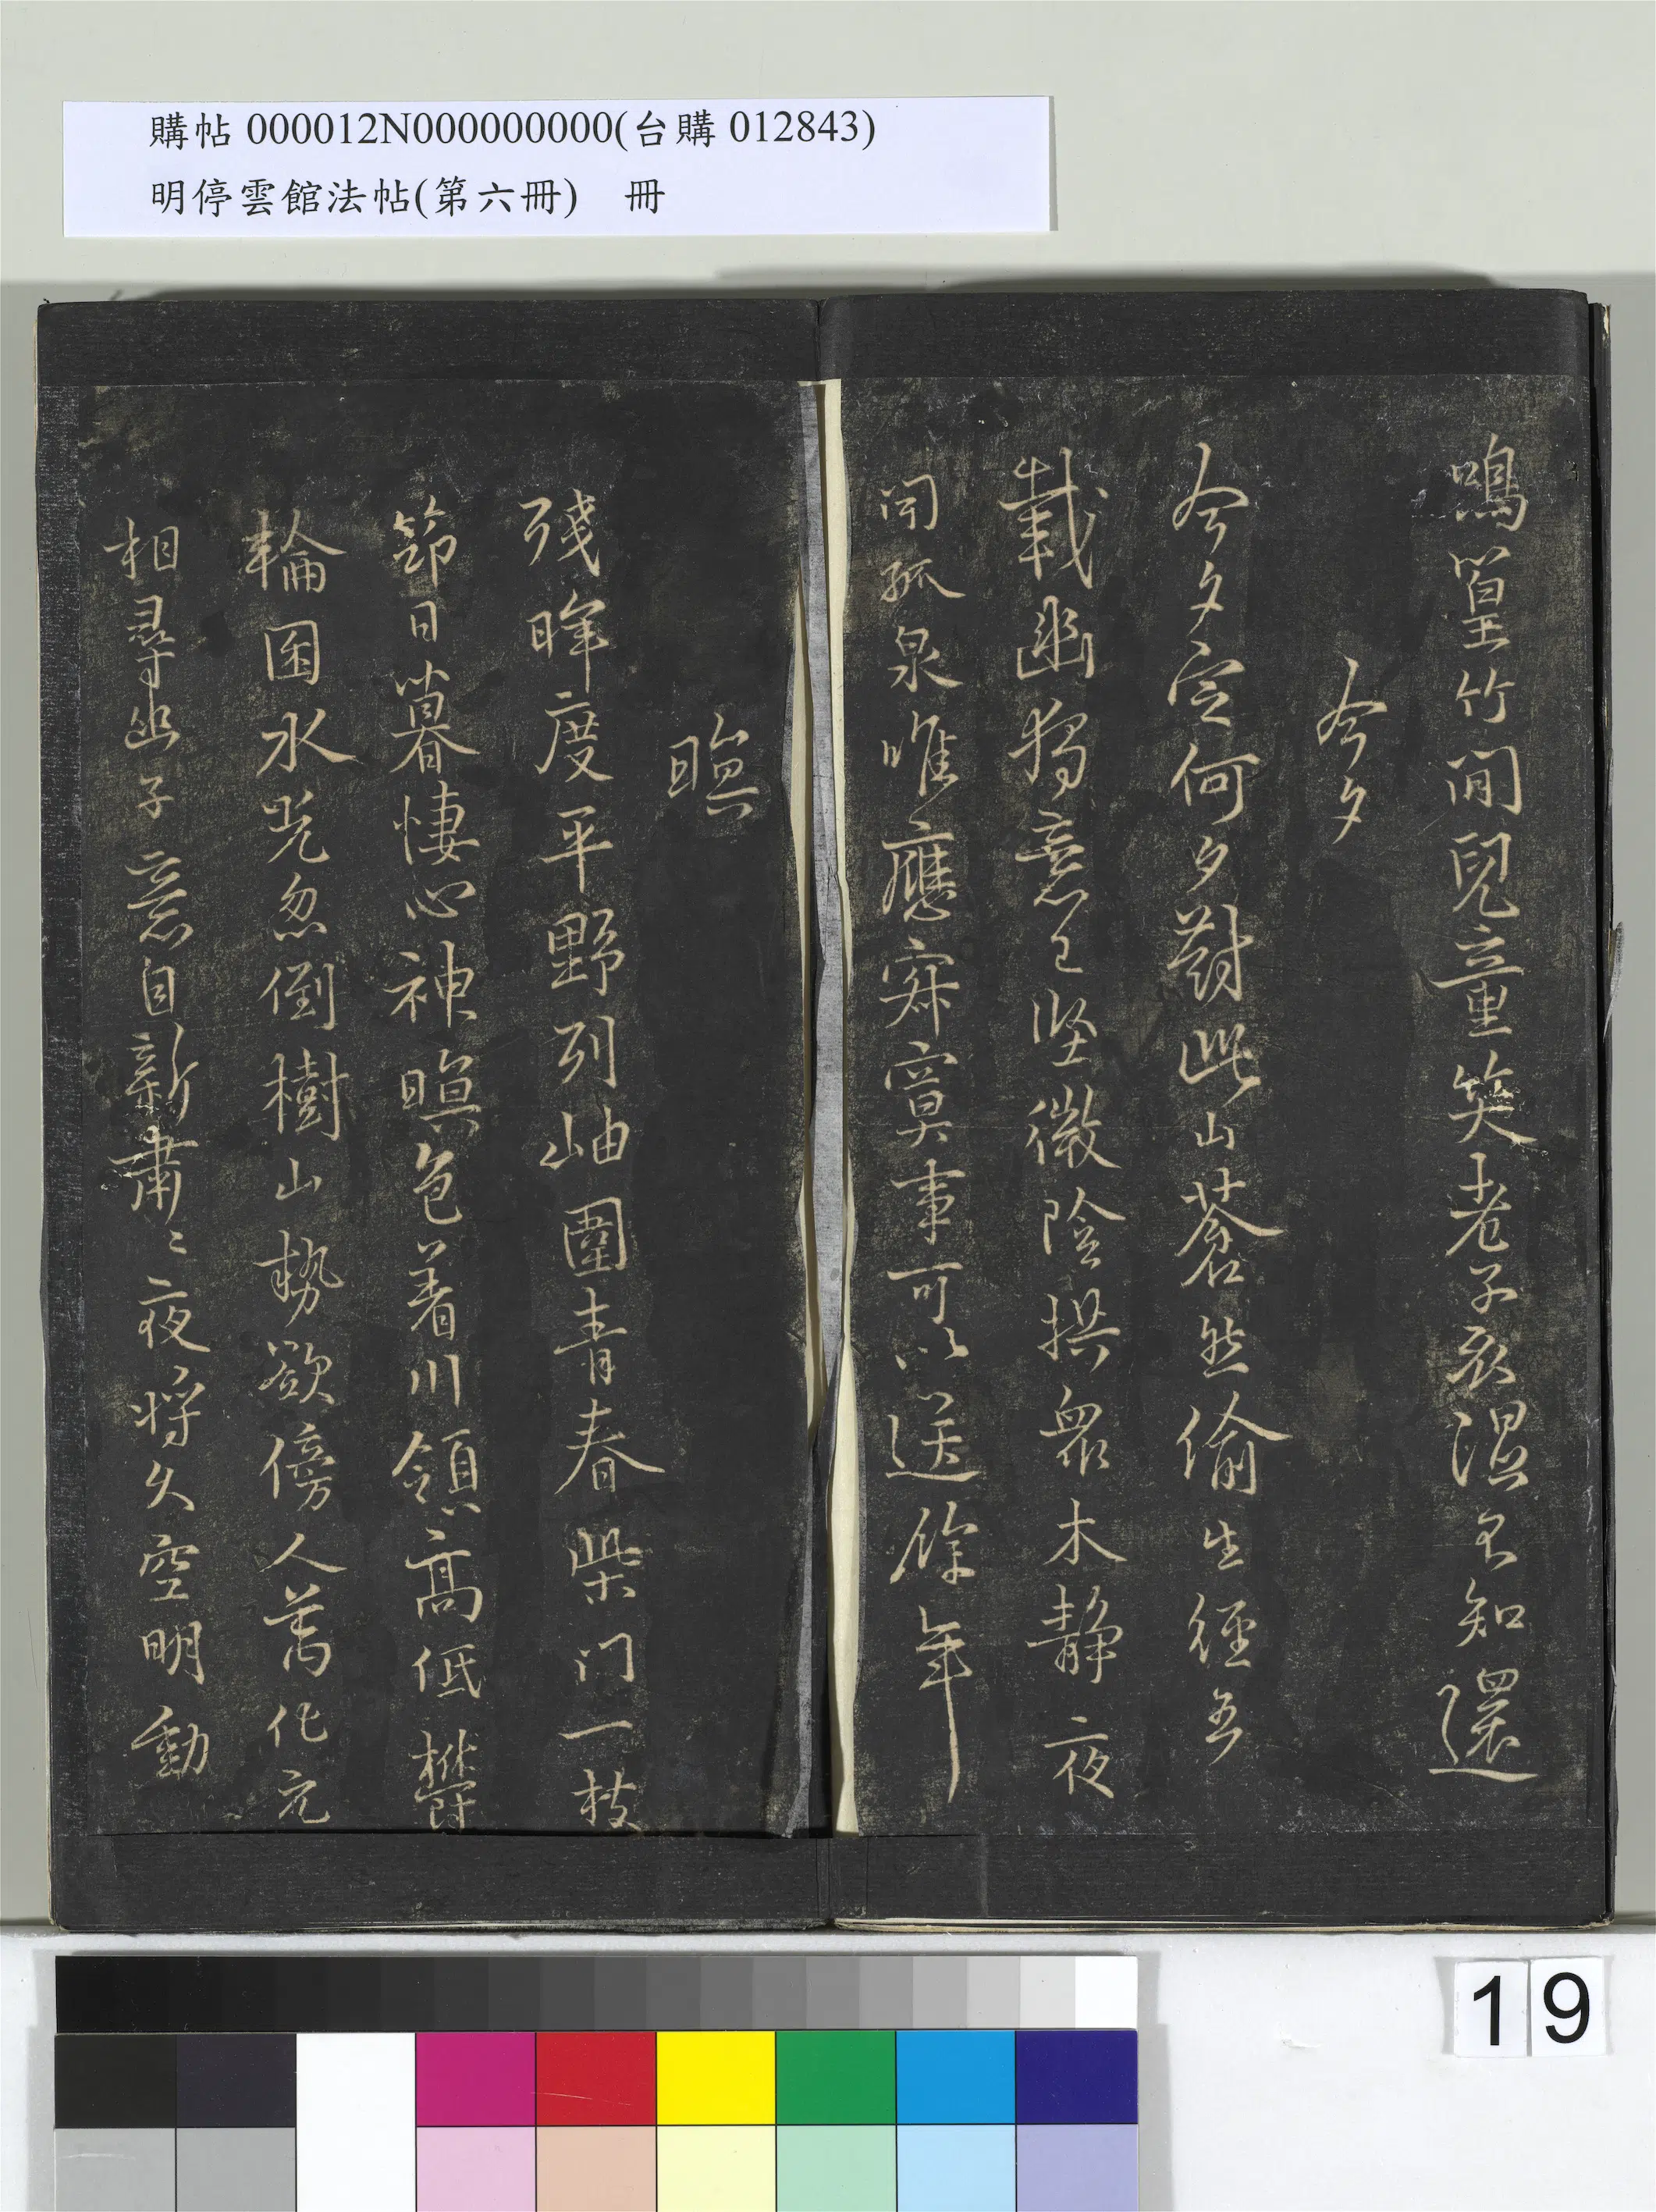 購帖 000012N000000000(台購 012843)
明停雲館法帖(第六冊)　冊
鳴篁竹間兒童笑老子衣濕不知還
今夕
今夕定何夕對此山蒼然偷生經五
載幽獨意已堅微陰拱眾木靜夜
聞孤泉唯應寂寞事可以送餘年
暝
殘暉度平野列岫圍青春柴門一枝
筇日暮悽心神暝色著川領高低鬱
輪囷水光忽倒樹山勢欲傍人萬化元
相尋幽子意自新肅〻夜將久空明動
19